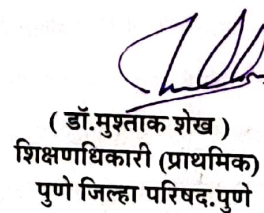 ( डॉ.मुश्ताक शेख )
शिक्षणधिकारी (प्राथमिक)
पुणे जिल्हा परिषद.पुणे